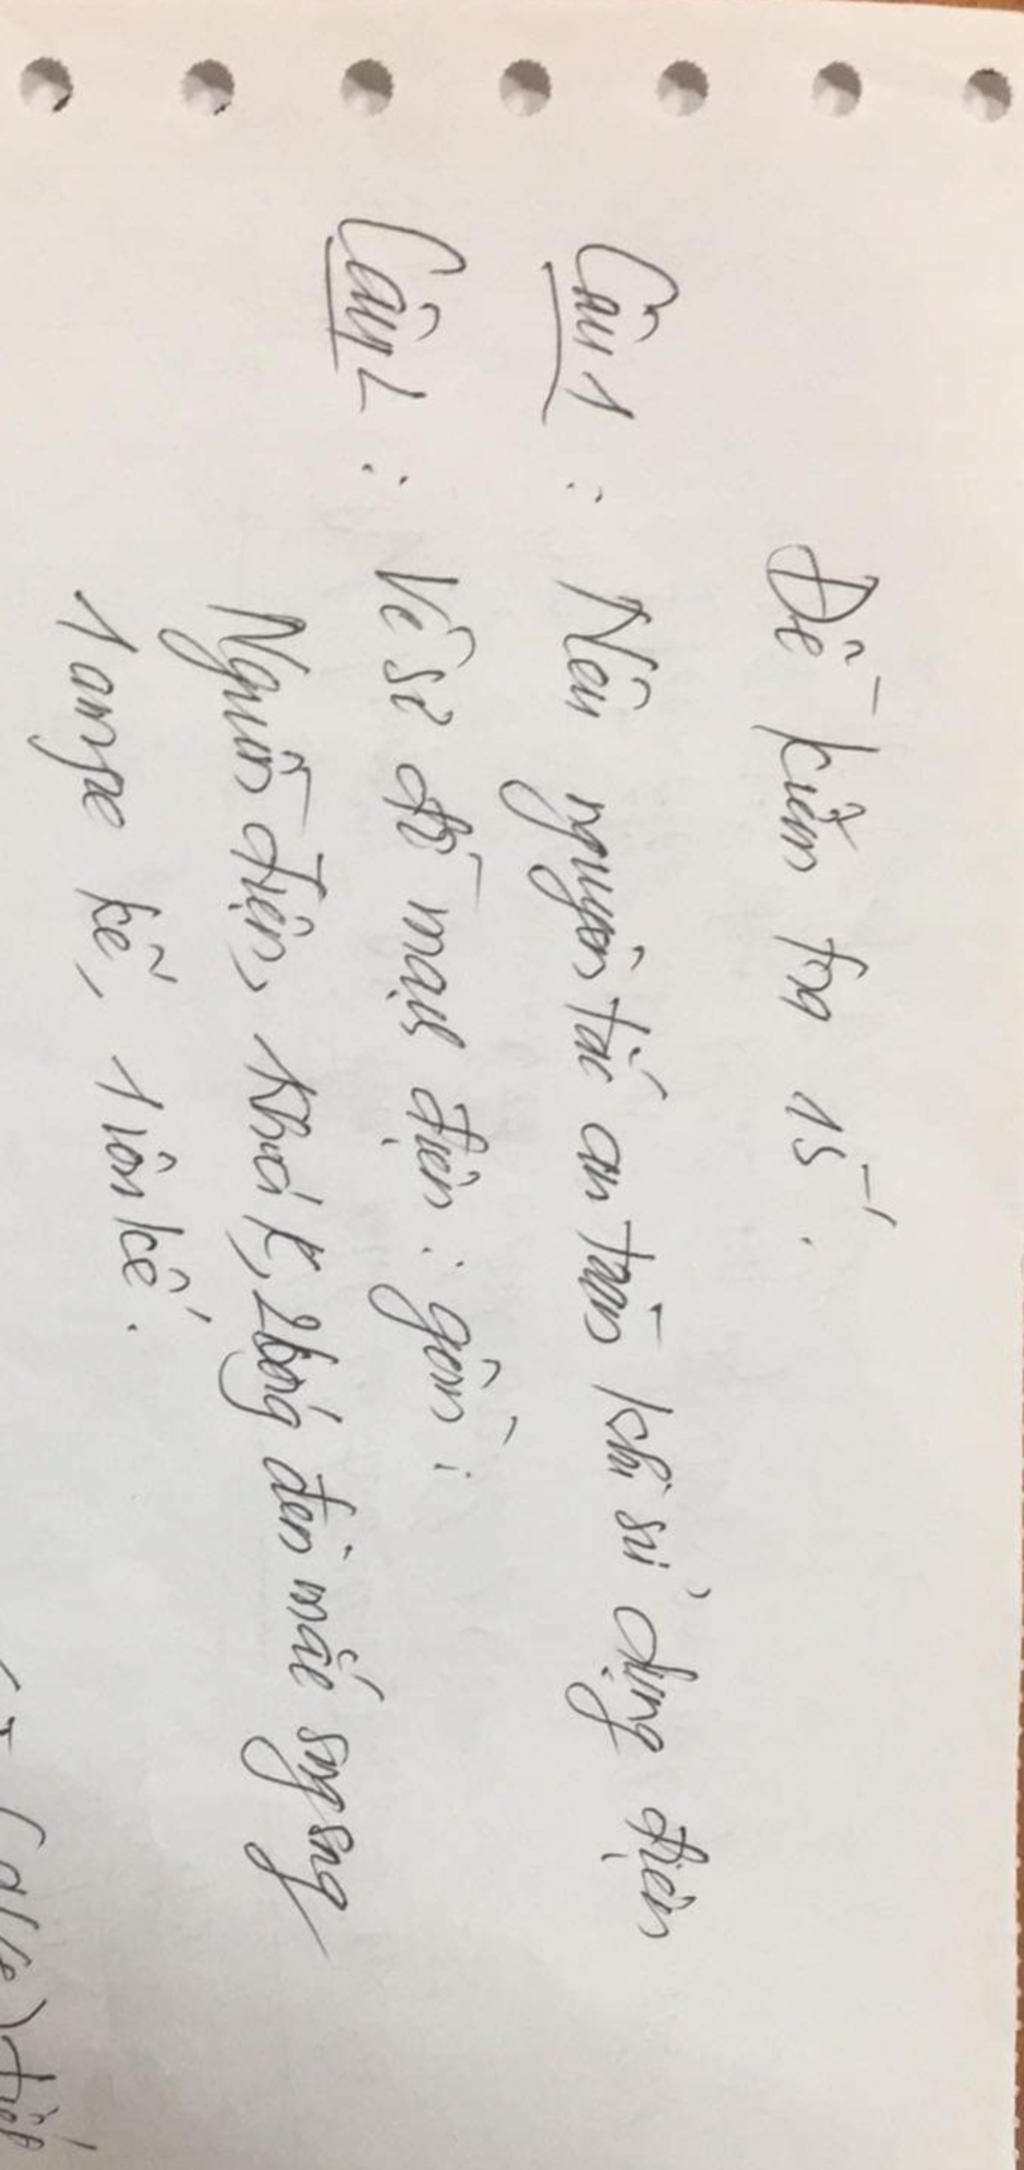 Đề kiểm tra 15'.
Câu 1 : Nêu nguyên tắc an toàn khi sử dụng điện
Câu 2 : Vẽ sơ đồ mạch điện : gồm :
Nguồn điện, khoá K, 2 bóng đèn mắc sng sng
1 ampe kế, 1 vôn kế.